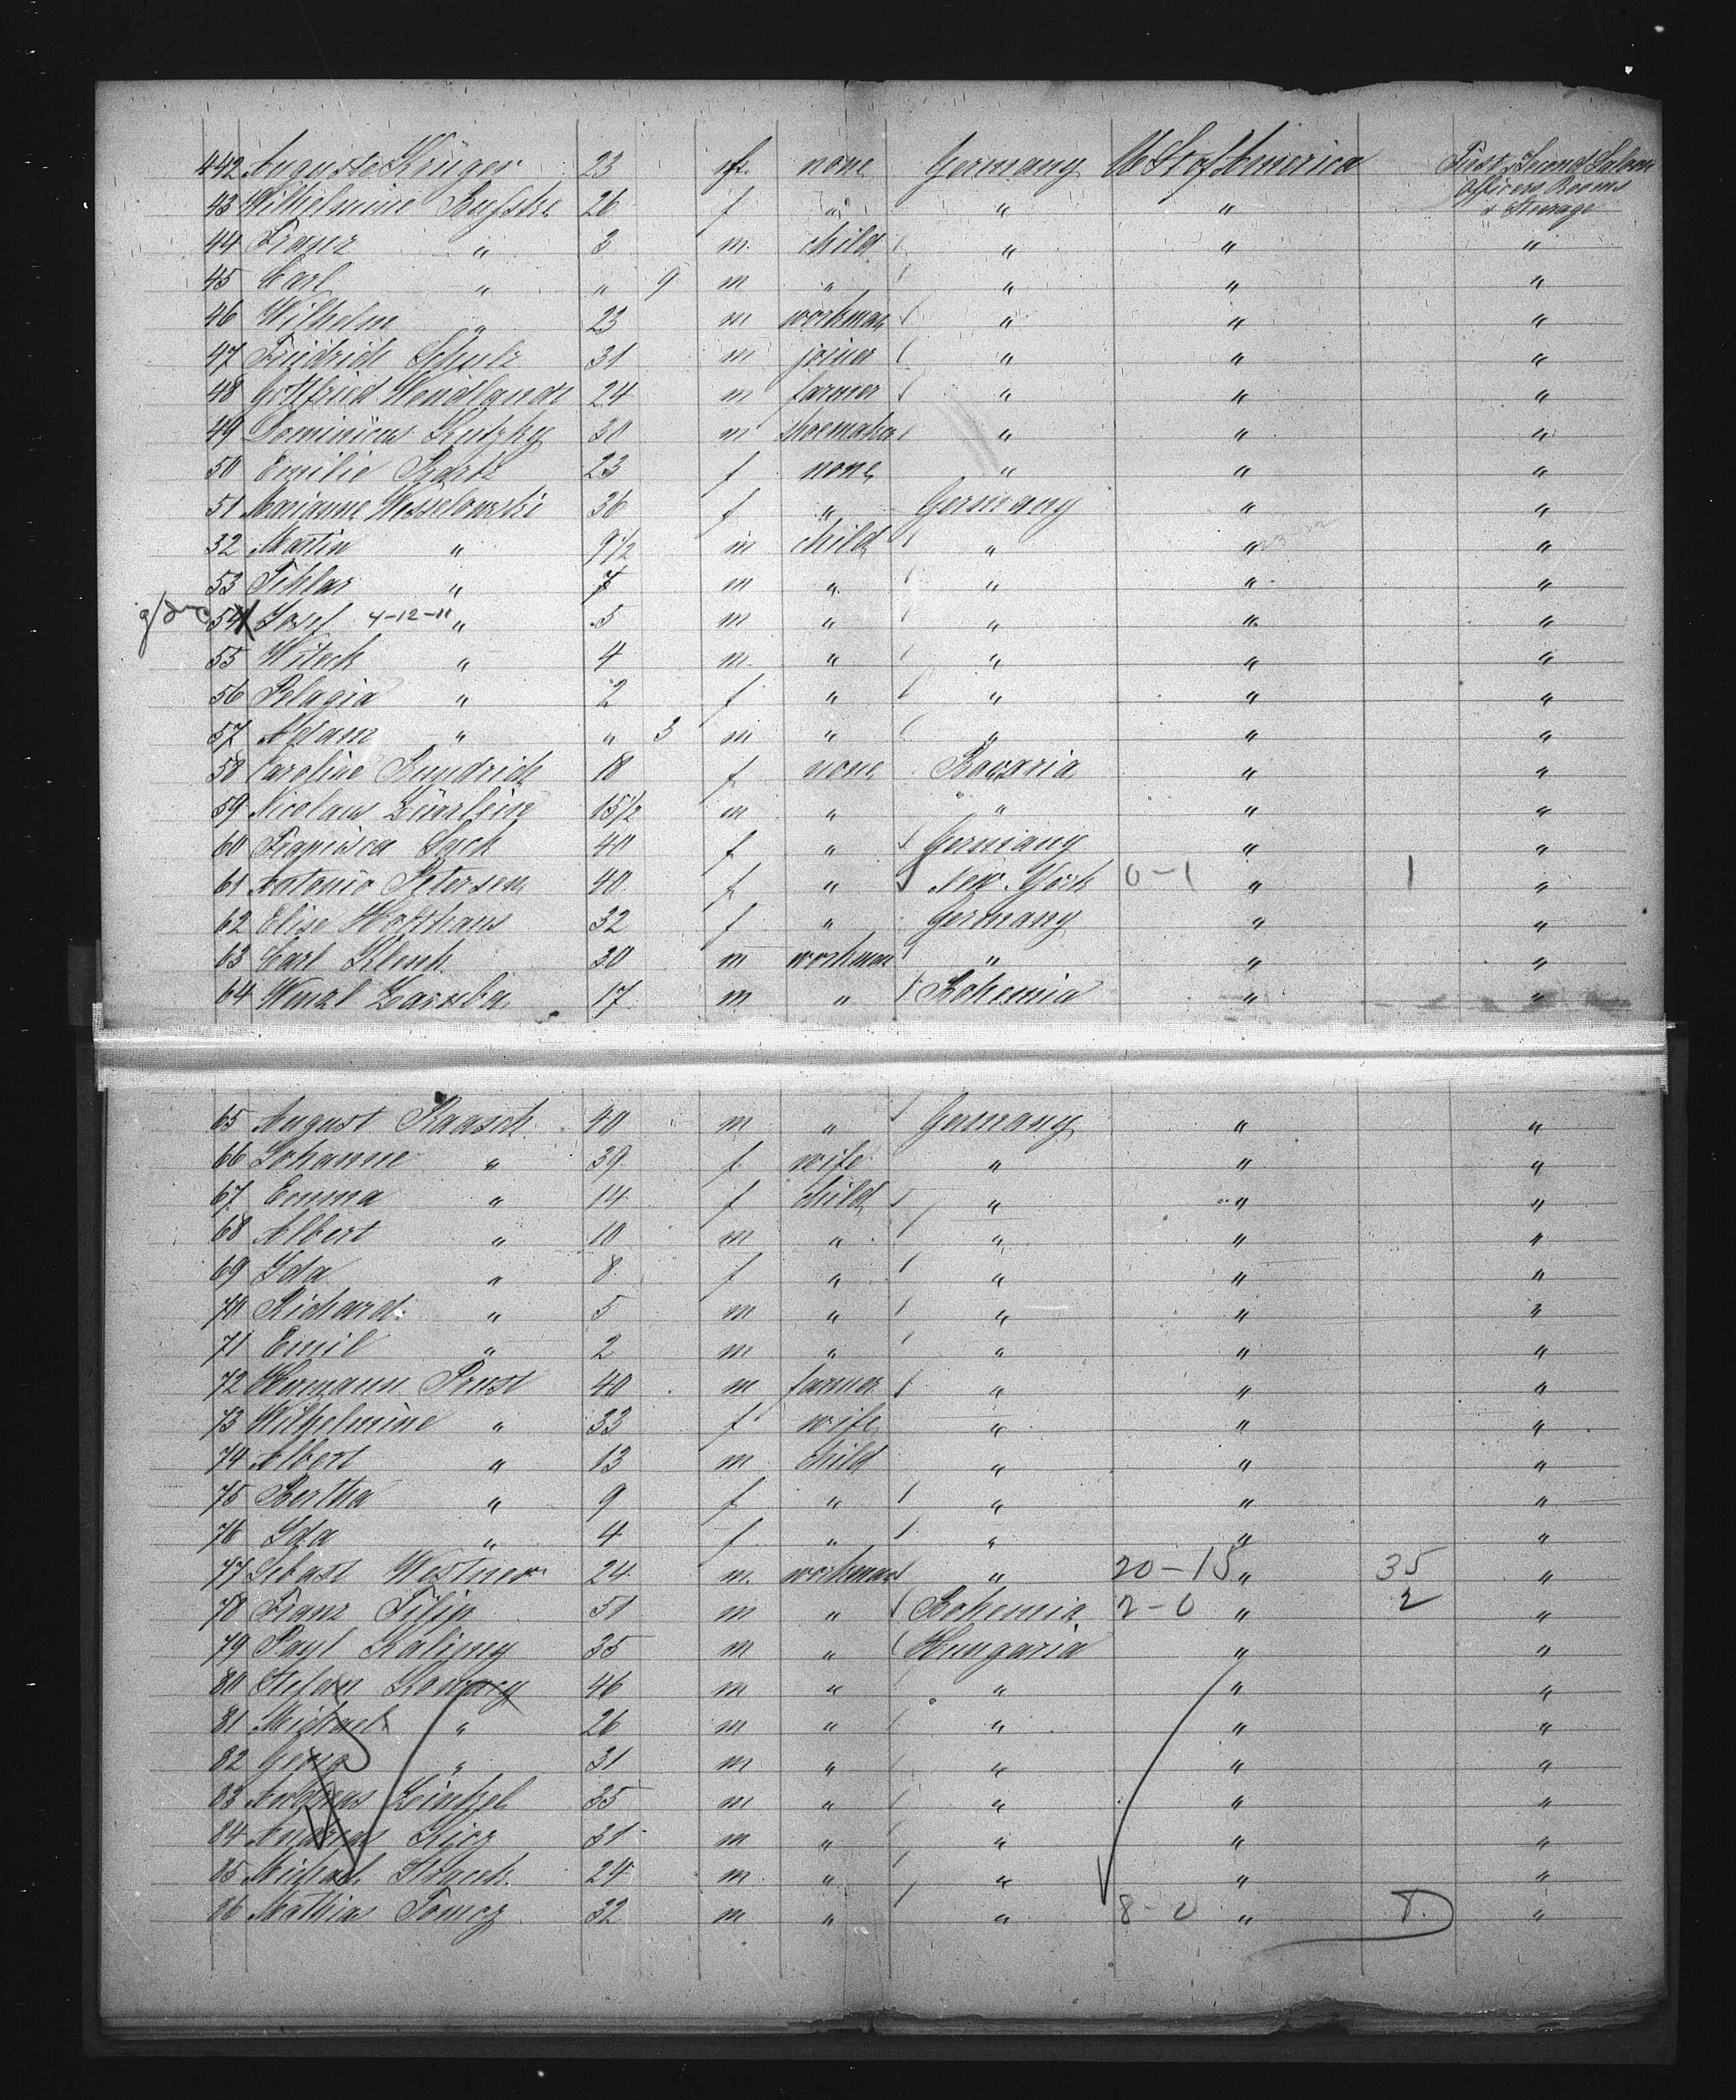 442 Auguste Krüger 23 f. none Germany U St of America First, Second Saloon
Officers Rooms
43 Wilhelmine 26 f " " " & Steerage
44 Franz " 3 m. child " " "
45 Carl " " 9 m " " " "
46 Wilhelm " 23 m workman " " "
47 Friedrich Schulz 31 m joiner " " "
48 Gottfried Wendlandt 24 m farmer " " "
49 Dominicus Kutzky 30 m shoemaker " " "
50 Emilie 23 f none " " "
51 Marianne Wesselowski 36 f " Germany " "
52 Martin " 9 1/2 m child " " "
53 " 7 m " " " "
54 X Josef 4-12-11 " 5 m " " " "
55 Witeck " 4 m. " " " "
56 Pelagia " 2 f " " " "
57 Adam " " 3 m " " " "
58 Caroline 18 f none Bavaria " "
59 Nicolaus 15 1/2 m " " " "
60 Franzisca 40 f " Germany " "
61 Antonio Petersen 40 f " New-York 0-1 " 1 "
62 Elise Holthaus 32 f " Germany " "
63 Carl Klenk 30 m workman " " "
64 Wenzl Zaruba 17 m " Bohemia " "
65 August Raasch 40 m " Germany " "
66 Johanne " 39 f wife " " "
67 Emma " 14 f child " " "
68 Albert " 10 m " " " "
69 Ida " 8 f " " " "
70 Richard " 5 m " " " "
71 Emil " 2 m " " " "
72 Hermann Prust 40 m farmer " " "
73 Wilhelmine " 33 f wife " " "
74 Albert " 13 m child " " "
75 Bertha " 9 f " " " "
76 Ida " 4 f " " " "
77 Sebast Westner 24 m. workman " 20-15 " 35 "
78 Franz Filip 51 m " Bohemia 2-0 " 2 "
79 Paul 35 m " Hungaria " "
80 Stefan 46 m " " " "
81 Michael " 26 m " " " "
82 Georg " 31 m " " " "
83 Andreas 35 m " " " "
84 Andreas 31 m " " " "
85 Michael 24 m " " " "
86 Mathias Tomcz 32 m " " 8-0 " 8 "